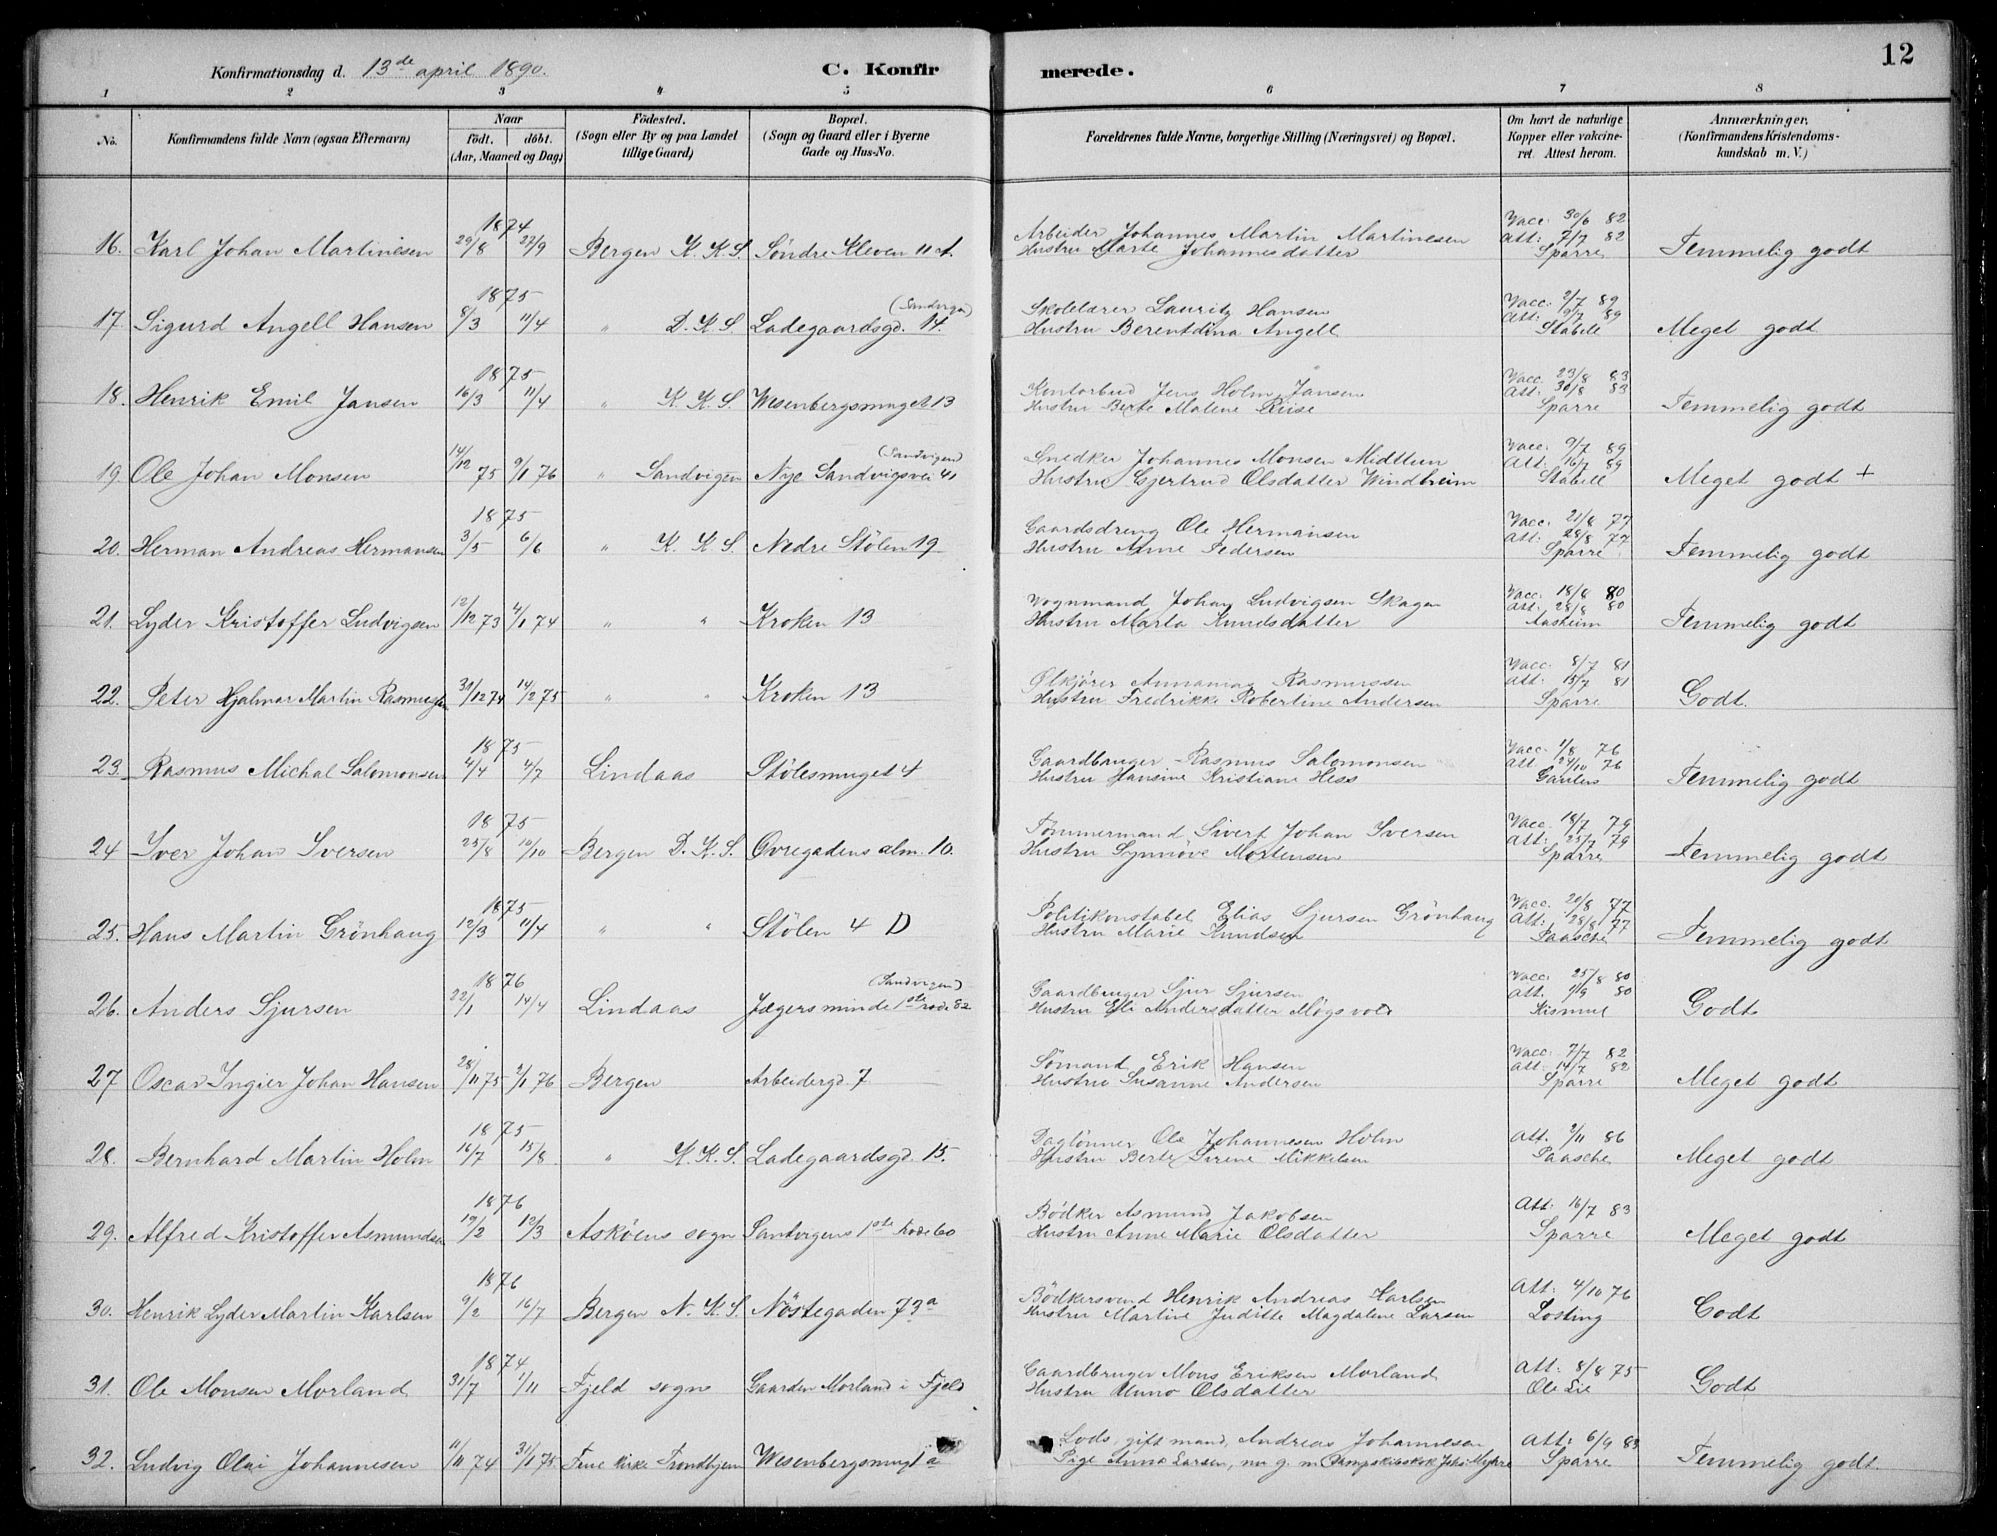 12
Konfirmationsdag d. 13de april 1890. C. Konfirmerede.
1 2 3 4 5 6 7 8
No. Konfirmandens fulde Navn (ogsaa Efternavn) Naar Födt. döbt. (Aar, Maaned og Dag) Födested. (Sogn eller By og paa Landet tillige Gaard) Bopæl. (Sogn og Gaard eller i Byerne Gade og Hus-No. Forældrenes fulde Navne, borgerlige Stilling (Næringsvei) og Bopæl. Om havt de naturlige Kopper eller vakcineret. Attest herom. Anmærkninger, (Konfirmandens Kristendomskundskab m. V.)
16. Karl Johan Martinesen 1874 29/8 27/9 Bergen K. K. S. Söndre Kleven 11 A. Arbeider Johannes Martin Martinesen Vacc. 30/6 82
Hustru Marte Johannesdatter Att: 7/7 82 Sparre Temmelig godt
17. Sigurd Angell Hansen 1875 8/3 11/4 " D. K. S. Ladegaardsgd. 14 (Sandvigen) Skolelærer Lauritz Hansen Vacc. 2/7 89
Hustru Berentdina Angell Att: 9/7 89 Stabell Meget godt
18. Henrik Emil Jansen 1875 16/3 11/4 " K. K. S. Wesenbergsmuget 13 Kontorbud Jens Holm Jansen Vacc. 23/8 83
Hustru Berte Malene Riise Att: 30/8 83 Sparre Temmelig godt
19. Ole Johan Monsen 14/12 75 9/1 76 " Sandvigen Nye Sandvigsvei 41 (Sandvigen) Snedker Johannes Monsen Midttun Vacc. 9/7 89
Hustru Gjertrud Olsdatter Windheim Att: 16/7 89 Stabell Meget godt +
20. Herman Andreas Hermansen 1875 3/5 6/6 " K. K. S. Nedre Stölen 19 Gaardsdreng Ole Hermansen Vacc. 21/8 77
Hustru Anne Pedersen Att: 28/8 77 Sparre Temmelig godt
21. Lyder Kristoffer Ludvigsen 12/12 73 4/1 74 " " Kroken 13 Vognmand Johan Ludvigsen Skagen Vacc. 18/8 80
Hustru Marta Knudsdatter Att: 25/8 80 Aasheim Temmelig godt
22. Peter Hjalmar Martin Rasmussen 31/12 74 14/2 75 " " Kroken 13 Ölkjörer Annanias Rasmussen Vacc. 8/7 81
Hustru Fredrikke Robertine Andersen Att: 15/7 81 Sparre Godt.
23. Rasmus Michal Salomonsen 1875 4/4 4/7 Lindaas Stölesmuget 4 Gaardbruger Rasmus Salomonsen Vacc. 1/8 76
Hustru Hansine Kristiane Hess Att 24/10 76 Temmelig godt
24 Iver Johan Iversen 1875 25/8 10/10 Bergen D. K. S. Øvregadens alm. 10. Tömmermand Sivert Johan Iversen Vacc. 18/7 79
Hustru Synnöve Mortensen Att: 25/7 79 Sparre Temmelig godt
25. Hans Martin Grönhaug 1875 12/3 11/4 " " Stölen 4 D Politikonstabel Elias Sjursen Grönhaug Vacc. 20/8 77
Hustru Marie Knudsen Att: 28/8 77 Paasche Temmelig godt
26. Anders Sjursen 1876 22/1 14/4 Lindaas Jægersminde 1ste rode 82 (Sandvigen) Gaardbruger Sjur Sjursen Vacc. 25/8 80
Hustru Eli Andersdatter Mögsvold Att. 1/9 80 Kismul Godt
27 Oscar Ingier Johan Hansen 28/11 75 2/1 76 Bergen Arbeidergd. 7 Sömand Erik Hansen Vacc: 7/7 82
Hustru Susanne Andersen Att: 14/7 82 Sparre Meget godt
28. Bernhard Martin Holm 1875 16/7 15/8 " K. K. S. Ladegaardsgd. 15. Daglönner Ole Johannesen Holm Att. 2/11 86
Hustru Berte Sirene Mikkelsen Paasche Meget godt
29. Alfred Kristoffer Asmundsen 1876 19/2 12/3 Asköens sogn Sandvigens 1ste rode 60 Bödker Asmund Jakobsen Att: 16/7 83
Hustru Anne Marie Olsdatter Sparre Meget godt
30. Henrik Lyder Martin Karlsen 1876 9/2 16/7 Bergen N. K. S. Nöstegaden 73a Bödkersvend Henrik Andreas Karlsen Att: 4/10 76
Hustru Martine Juditte Magdalene Larsen Losting Godt
31. Ole Monsen Morland 1874 31/7 1/11 Fjeld sogn Gaarden Morland i Fjeld Gaardbruger Mons Eriksen Morland Att: 8/8 75
Hustru Olsdatter Ole Lie Godt
32. Ludvig Olai Johannesen 11/11 74 31/1 75 Frue kirke Trondhjem Wesenbergsmug 1 a Lods, gift mand, Andreas Johannesen Att: 6/9 83
Pige Anna Larsen, nu g. m. Sparre Temmelig godt.